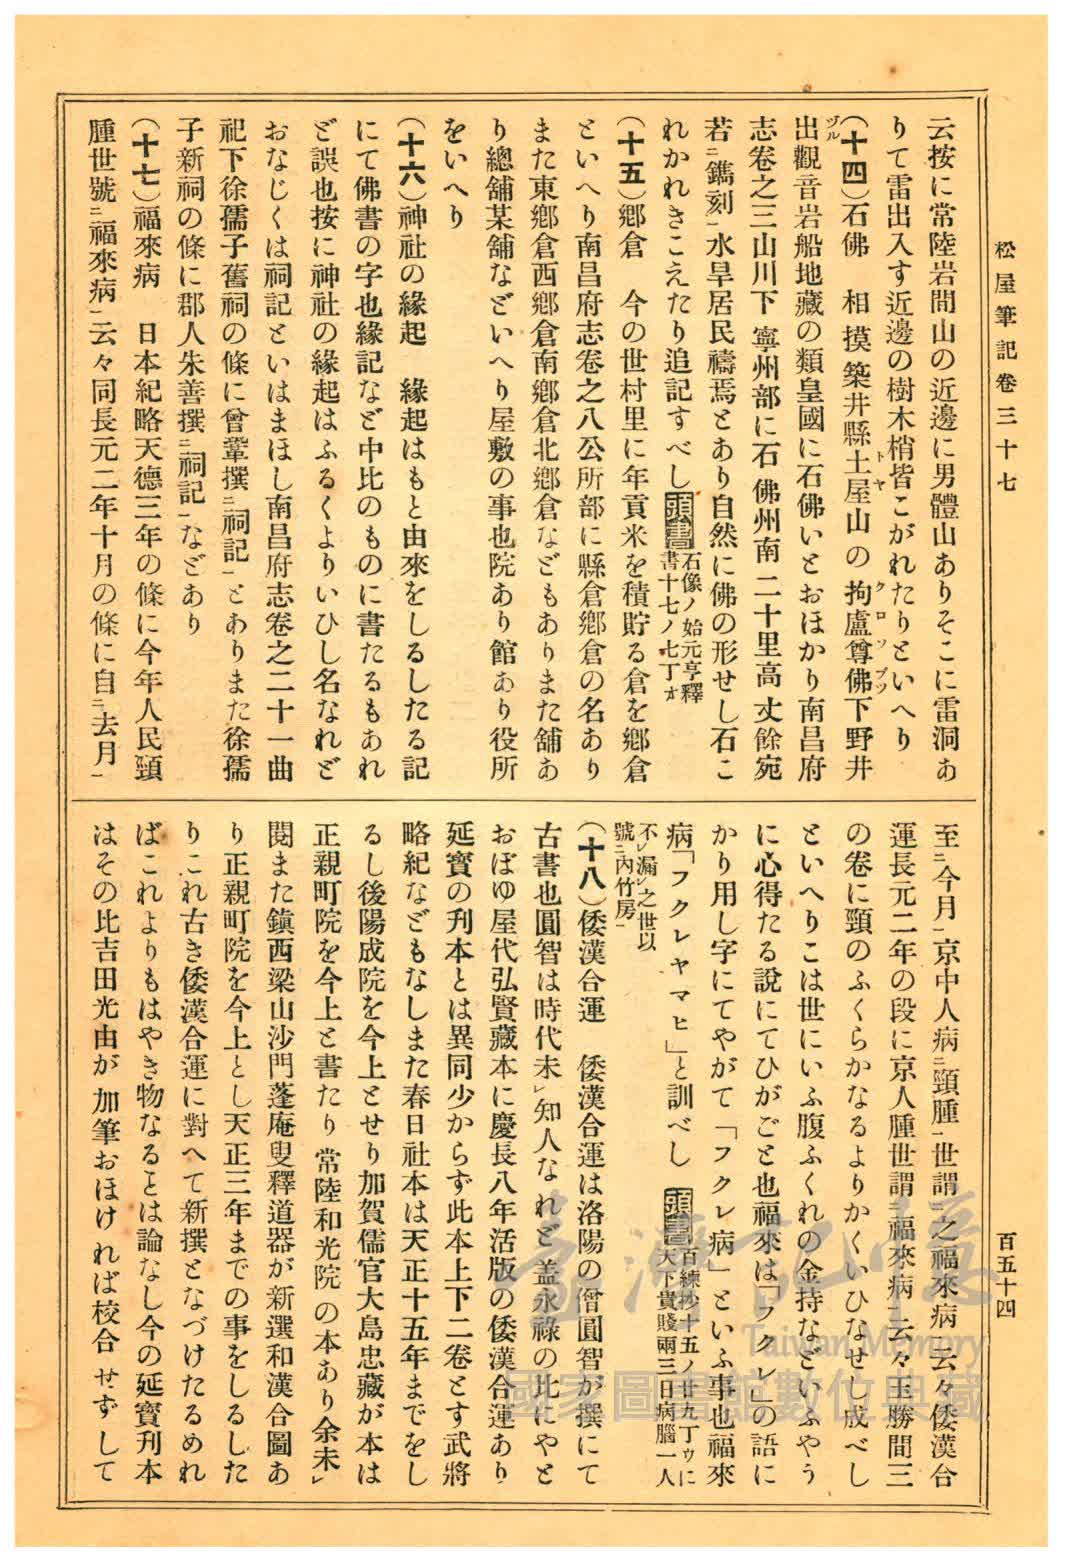 松屋筆記卷三十七
百五十四
云按に常陸岩間山の近邊に男體山ありそこに雷洞あ
りて雷出入す近邊の樹木梢皆こがれたりといへり
(十四)石佛　相摸築井縣土屋山の拘盧尊佛下野井
トヤ
クロソブツ
出觀音岩船地藏の類皇國に石佛いとおほかり南昌府
ヅル
志卷之三山川下 寧州部に石佛州南二十里高丈餘宛
若ニ鐫刻一水旱居民禱焉とあり自然に佛の形せし石こ
れかれきこえたり追記すべし頭書石像ノ始元亨釋
書十七ノ七丁オ
(十五)鄕倉　今の世村里に年貢米を積貯る倉を鄕倉
といへり南昌府志卷之八公所部に縣倉鄕倉の名あり
また東鄕倉西鄕倉南鄕倉北鄕倉などもありまた舖あ
り總舖某舖などいへり屋敷の事也院あり館あり役所
をいへり
(十六)神社の緣起　緣起はもと由來をしるしたる記
にて佛書の字也緣記など中比のものに書たるもあれ
ど誤也按に神社の緣起はふるくよりいひし名なれど
おなじくは祠記といはまほし南昌府志卷之二十一曲
祀下徐孺子舊祠の條に曾鞏撰ニ祠記一とありまた徐孺
子新祠の條に郡人朱善撰ニ祠記一などあり
(十七)福來病　日本紀略天德三年の條に今年人民頸
腫世號ニ福來病一云々同長元二年十月の條に自ニ去月一
至ニ今月一京中人病ニ頸腫一世謂ニ之福來病一云々倭漢合
運長元二年の段に京人腫世謂ニ福來病一云々玉勝間三
の卷に頸のふくらかなるよりかくいひなせし成べし
といへりこは世にいふ腹ふくれの金持などいふやう
に心得たる說にてひがごと也福來は「フクレ」の語に
かり用し字にてやがて「フクレ病」といふ事也福來
病「フクレヤマヒ」と訓べし 頭書百練抄十五ノ廿九丁ウに
天下貴賤兩三日病腦一人
不レ漏レ之世以
號ニ內竹房一
(十八)倭漢合運　倭漢合運は洛陽の僧圓智が撰にて
古書也圓智は時代未レ知人なれど蓋永祿の比にやと
おぼゆ屋代弘賢藏本に慶長八年活版の倭漢合運あり
延寶の刋本とは異同少からず此本上下二卷とす武將
略紀などもなしまた春日社本は天正十五年までをし
るし後陽成院を今上とせり加賀儒官大島忠藏が本は
正親町院を今上と書たり常陸和光院の本あり余未レ
閱また鎭西梁山沙門蓬庵叟釋道器が新選和漢合圖あ
り正親町院を今上とし天正三年までの事をしるした
りこれ古き倭漢合運に對へて新撰となづけたるめれ
ばこれよりもはやき物なることは論なし今の延寶刋本
はその比吉田光由が加筆おほければ校合せずして
臺灣記憶
Taiwan Memory
國家圖書館數位典藏